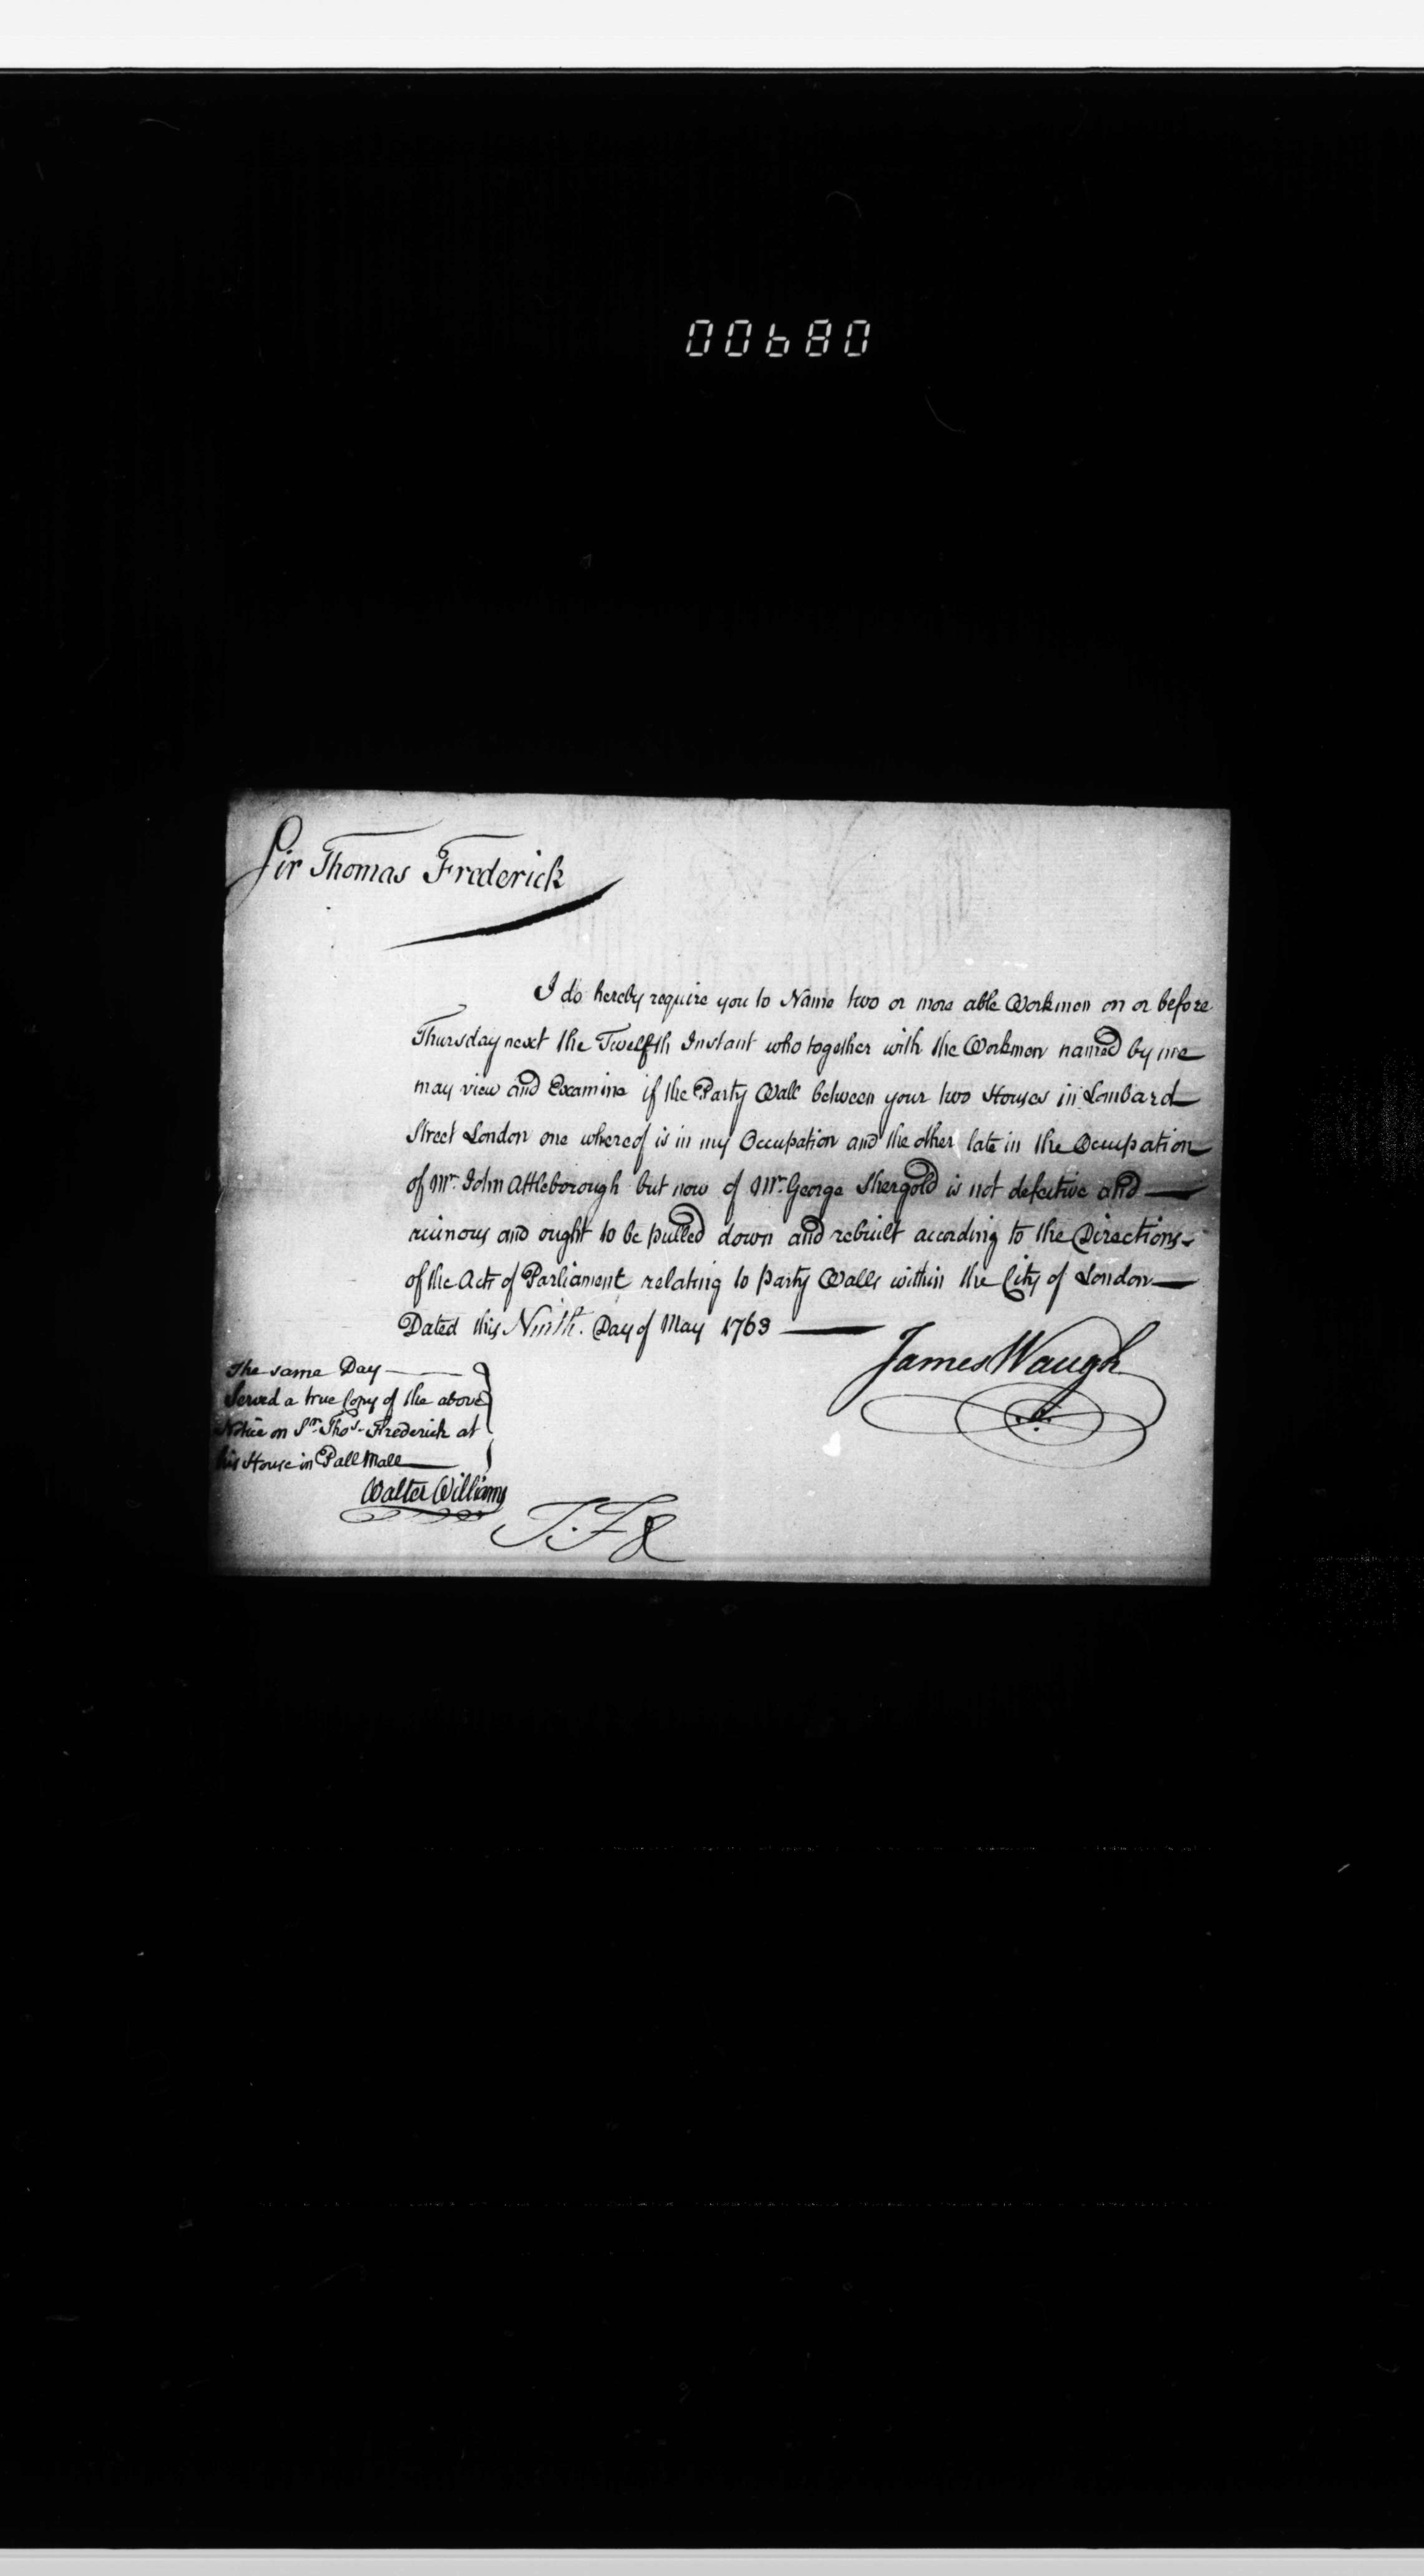 00680
Sir Thomas Frederick
I do hereby require you to Name two or more able Workmen on or before
Thursday next the Twelfth Instant who together with the Workmen named by me
may view and Examine if the Party Wall between your two Houses in Lombard
Street London one whereof is in my Occupation and the other late in the Occupation
of Mr. John Attleborough but now of Mr. George Shergold is not defective and
ruinous and ought to be pulled down and rebuilt according to the Directions
of the Acts of Parliament relating to Party Walls within the City of London
Dated this Ninth. Day of May 1763
James Waugh
The same Day
Served a true Copy of the above
Notice on Sr. Thos. Frederick at
his House in Pall Mall
Walter Williams